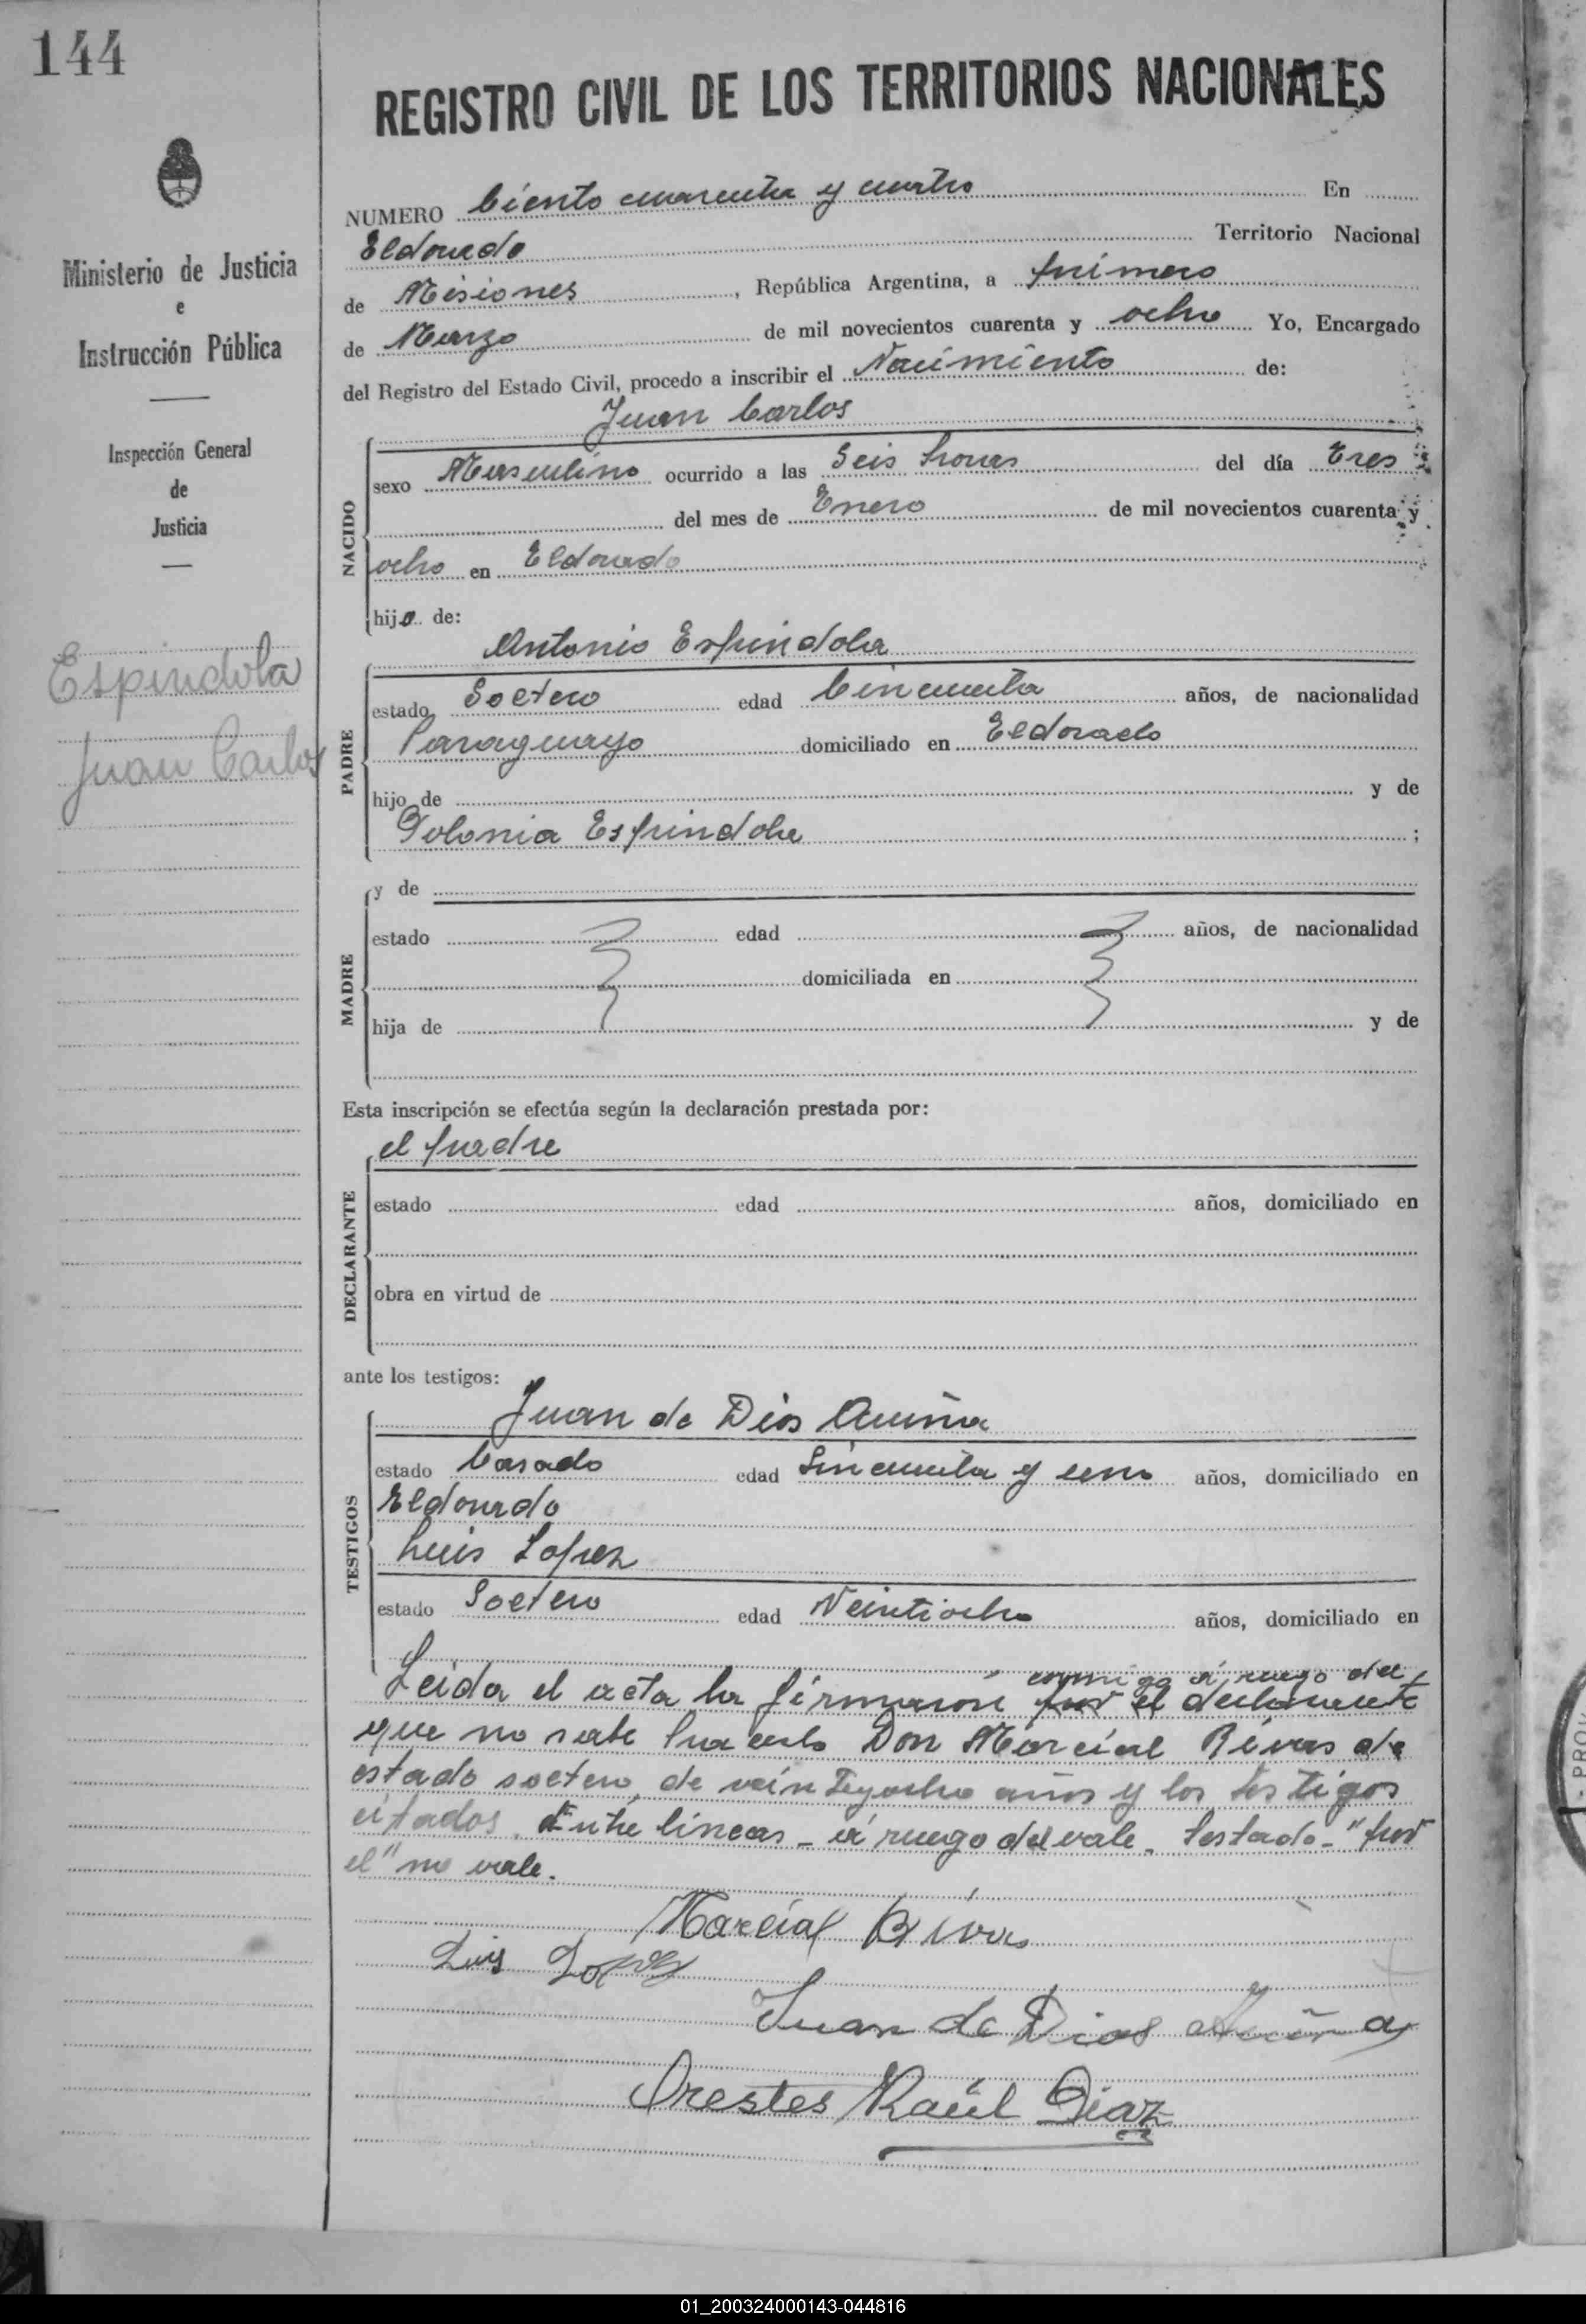 144
REGISTRO CIVIL DE LOS TERRITORIOS NACIONALES
Ministerio de Justicia
e
Instrucción Pública
Inspección General
de
Justicia
Espindola
Juan Carlos
NUMERO Ciento cuarenta y cuatro En
Eldorado Territorio Nacional
de Misiones, República Argentina, a primero
de Marzo de mil novecientos cuarenta y ocho Yo, Encargado
del Registro del Estado Civil, procedo a inscribir el Nacimiento de:
Juan Carlos
NACIDO
sexo Masculino ocurrido a las Seis horas del día Tres
del mes de Enero de mil novecientos cuarenta y
ocho en Eldorado
hijo de:
Antonio Espindola
PADRE
estado Soltero edad Cincuenta años, de nacionalidad
Paraguayo domiciliado en Eldorado
hijo de y de
Polonia Espindola ;
MADRE
y de
estado edad años, de nacionalidad
domiciliada en
hija de y de
Esta inscripción se efectúa según la declaración prestada por:
el padre
DECLARANTE
estado edad años, domiciliado en
obra en virtud de
ante los testigos:
TESTIGOS
Juan de Dios Acuña
estado Casado edad Sincuenta y uno años, domiciliado en
Eldorado
Luis Lopez
estado Soltero edad Veintiocho años, domiciliado en
conmigo á ruego del
Leida el acta la firmaron por el declarante
que no sabe hacerlo Don Marcial Rivas de
estado soltero, de veintiyocho años y los testigos
citados. Entre lineas - á ruego del vale. Testado - "por
el" no vale.
Marcial Rivas
Luis Lopez
Juan de Dios Acuña
Orestes Raúl Diaz
01_200324000143-044816